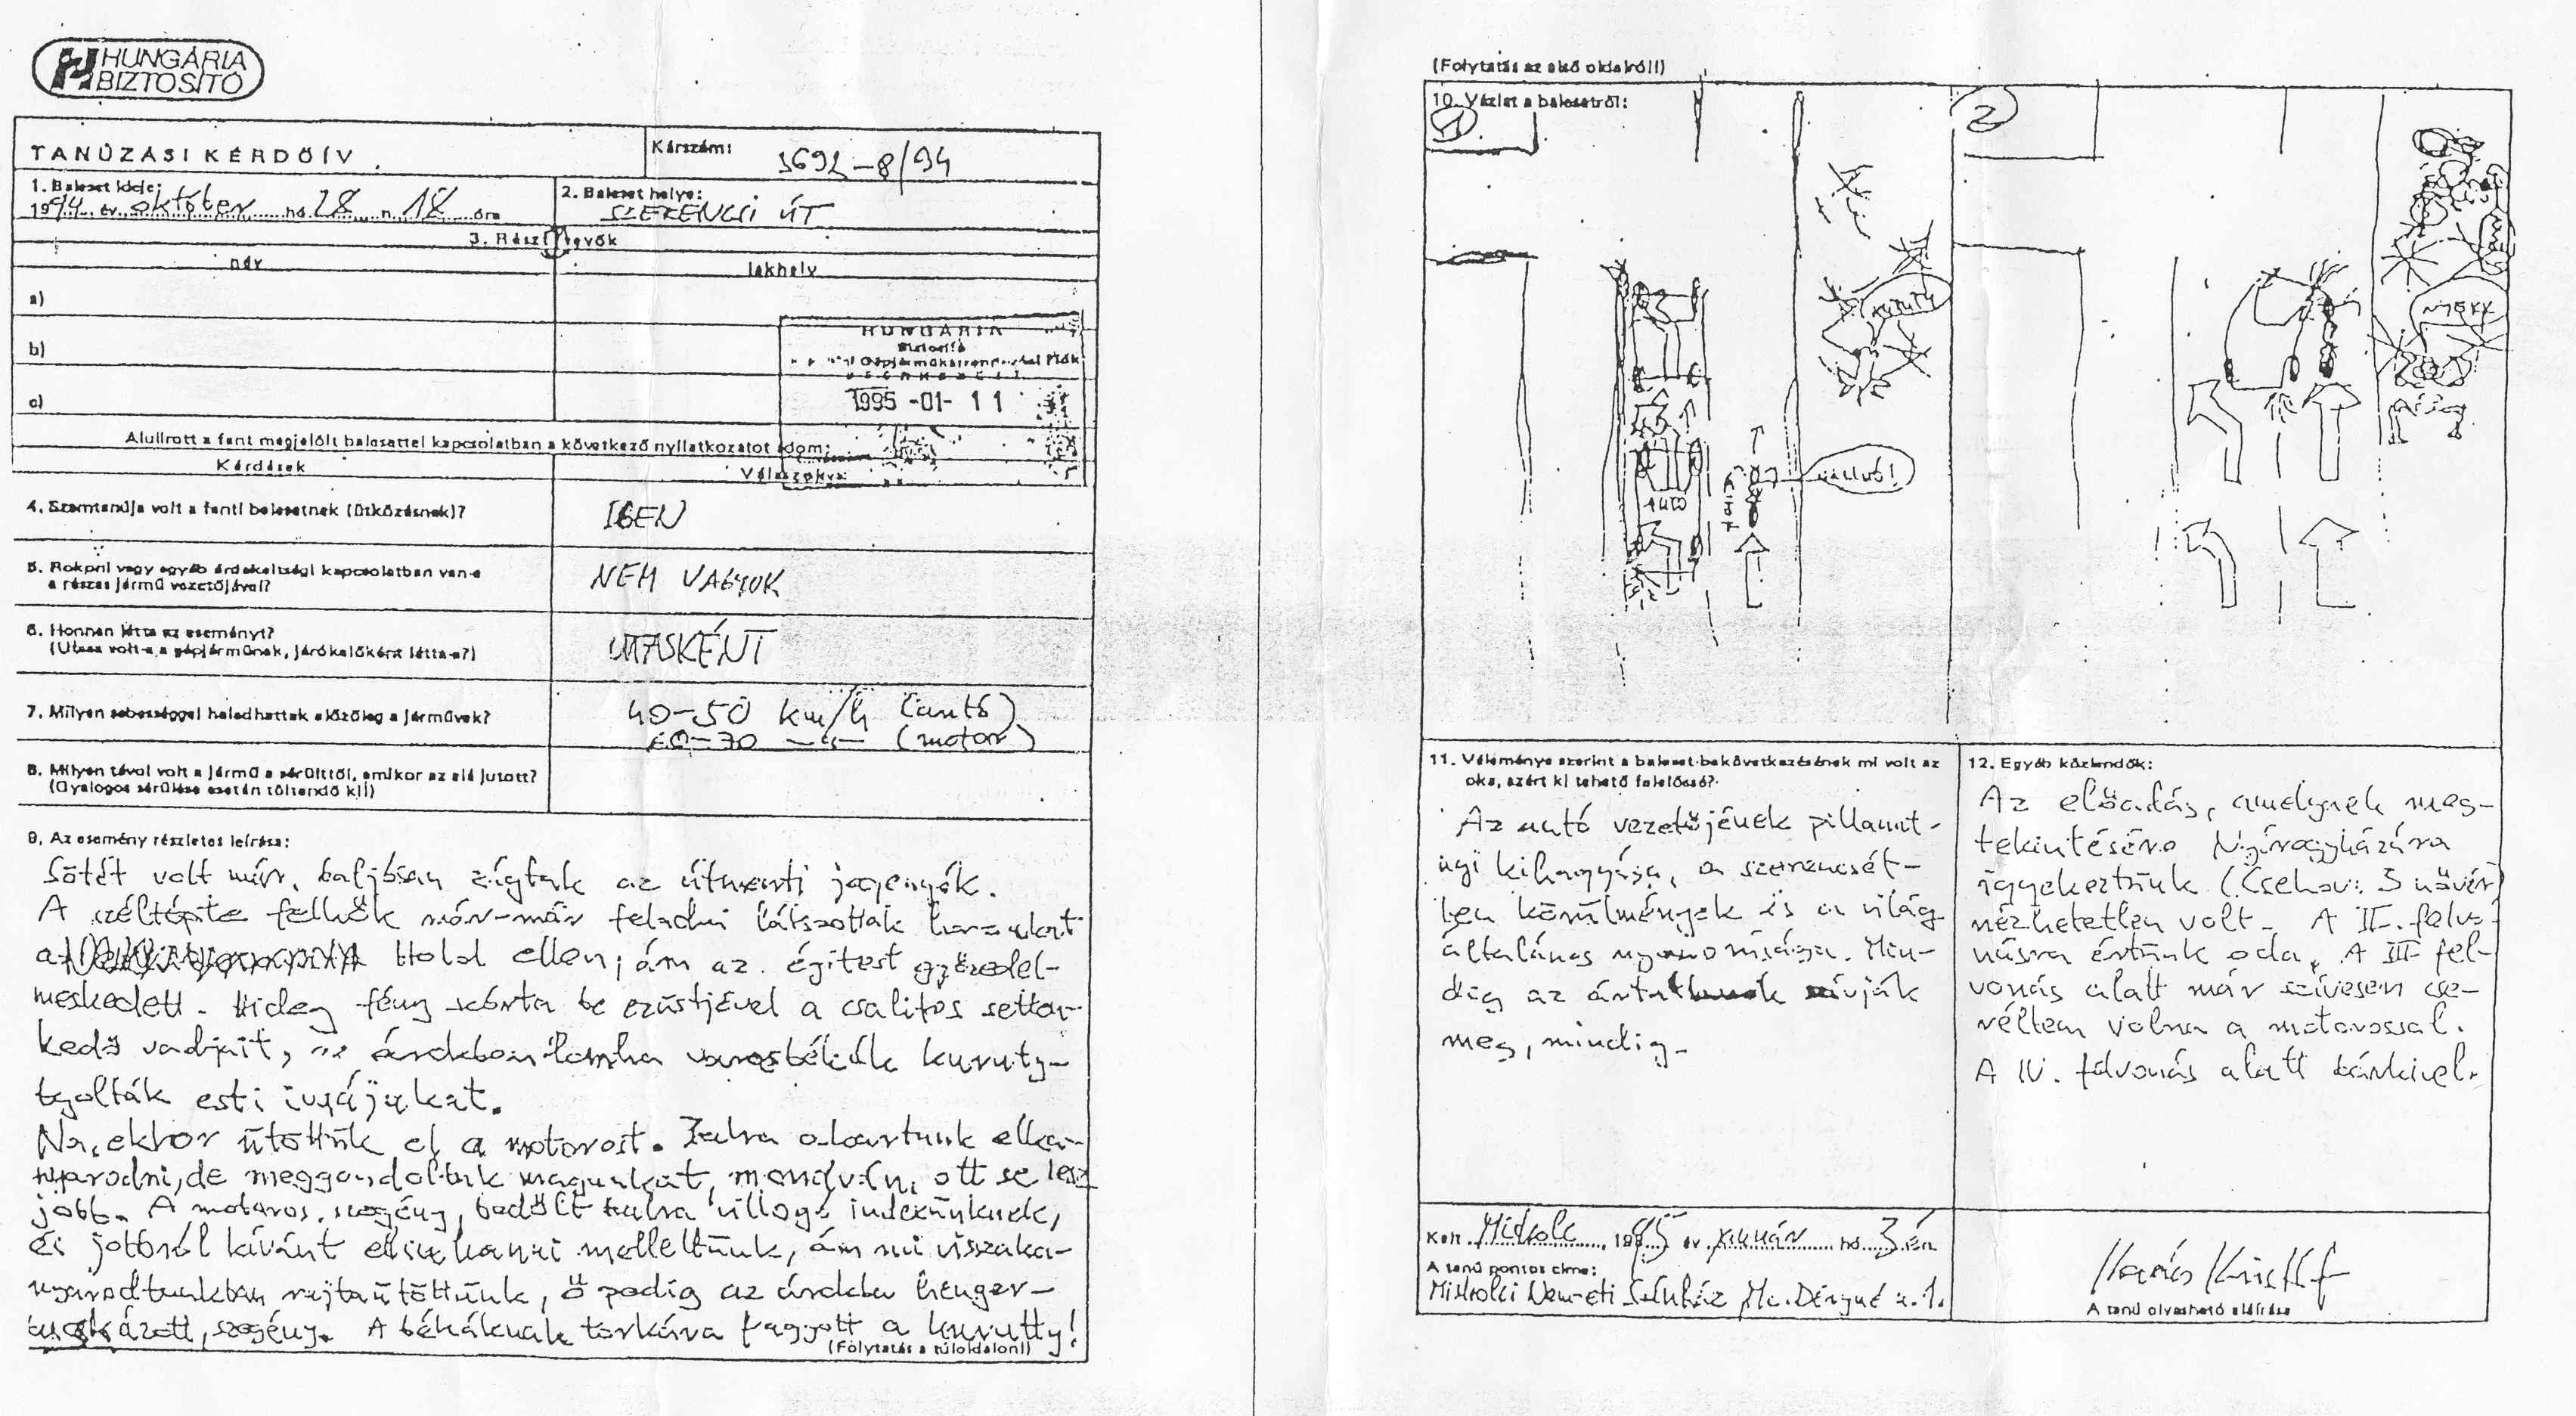 HUNGÁRIA
BIZTOSÍTÓ
TANÚZÁSI KÉRDŐÍV
Kárszám: 3692-8/94
1. Baleset ideje:
1994 év október hó 28 n 18 óra
2. Baleset helye:
SZERENCSI ÚT
3. Résztvevők
név
lakhely
a)
b)
c)
HUNGÁRIA
Biztosító
1995 -01- 11
Alulírott a fent megjelölt balesettel kapcsolatban a következő nyilatkozatot adom:
Kérdések
Válaszok
4. Szemtanúja volt a fenti balesetnek (ütközésnek)?
IGEN
5. Rokoni vagy egyéb érdekeltségi kapcsolatban van-e
a részes jármű vezetőjével?
NEM VAGYOK
6. Honnan látta az eseményt?
(Utasa volt-e a gépjárműnek, járókelőként látta-e?)
UTASKÉNT
7. Milyen sebességgel haladhattak előzőleg a járművek?
40-50 km/h (autó)
60-70 —"— (motor)
8. Milyen távol volt a jármű a sérülttől, amikor az elé jutott?
(Gyalogos sérülése esetén töltendő ki!)
9. Az esemény részletes leírása:
Sötét volt már, baljósan zúgtak az útmenti jegenyék.
A széltépte felhők már-már feladni látszottak harcukat
a Hold ellen, ám az égitest győzedel-
meskedett. Hideg fény szórta be ezüstjével a csalitos setten-
kedő vadjait, az árokban lomha varasbékák kuruty-
tyolták esti imájukat.
Na, ekkor ütöttük el a motorost. Balra akartunk elka-
nyarodni, de meggondoltuk magunkat, mondván, ott se lesz
jobb. A motoros, szegény, bedőlt balra villogó indexünknek,
és jobbról kívánt elsuhanni mellettünk, ám mi visszaka-
nyarodtunkban rajtaütöttünk, ő pedig az árokba henger-
buckázott, szegény. A békáknak torkára fagyott a kurutty!
(Folytatás a túloldalon!)
(Folytatás az első oldalról!)
10. Vázlat a balesetről:
1
2
KURUTY
NYEKK
AUTÓ
11. Véleménye szerint a baleset bekövetkezésének mi volt az
oka, azért ki tehető felelőssé?
Az autó vezetőjének pillanat-
nyi kihagyása, a szerencsét-
len körülmények és a világ
általános nyomorúsága. Min-
dig az ártatlanok szívják
meg, mindig.
12. Egyéb közlendők:
Az előadás, amelynek meg-
tekintésére Nyíregyházára
igyekeztünk (Csehov: 3 nővér)
nézhetetlen volt. A II. felvo-
násra értünk oda. A III. fel-
vonás alatt már szívesen cse-
réltem volna a motorossal.
A IV. felvonás alatt bárkivel.
Kelt Miskolc, 1995 év január hó 3 -án
A tanú pontos címe:
Miskolci Nemzeti Színház, Mc. Déryné u. 1.
A tanú olvasható aláírása